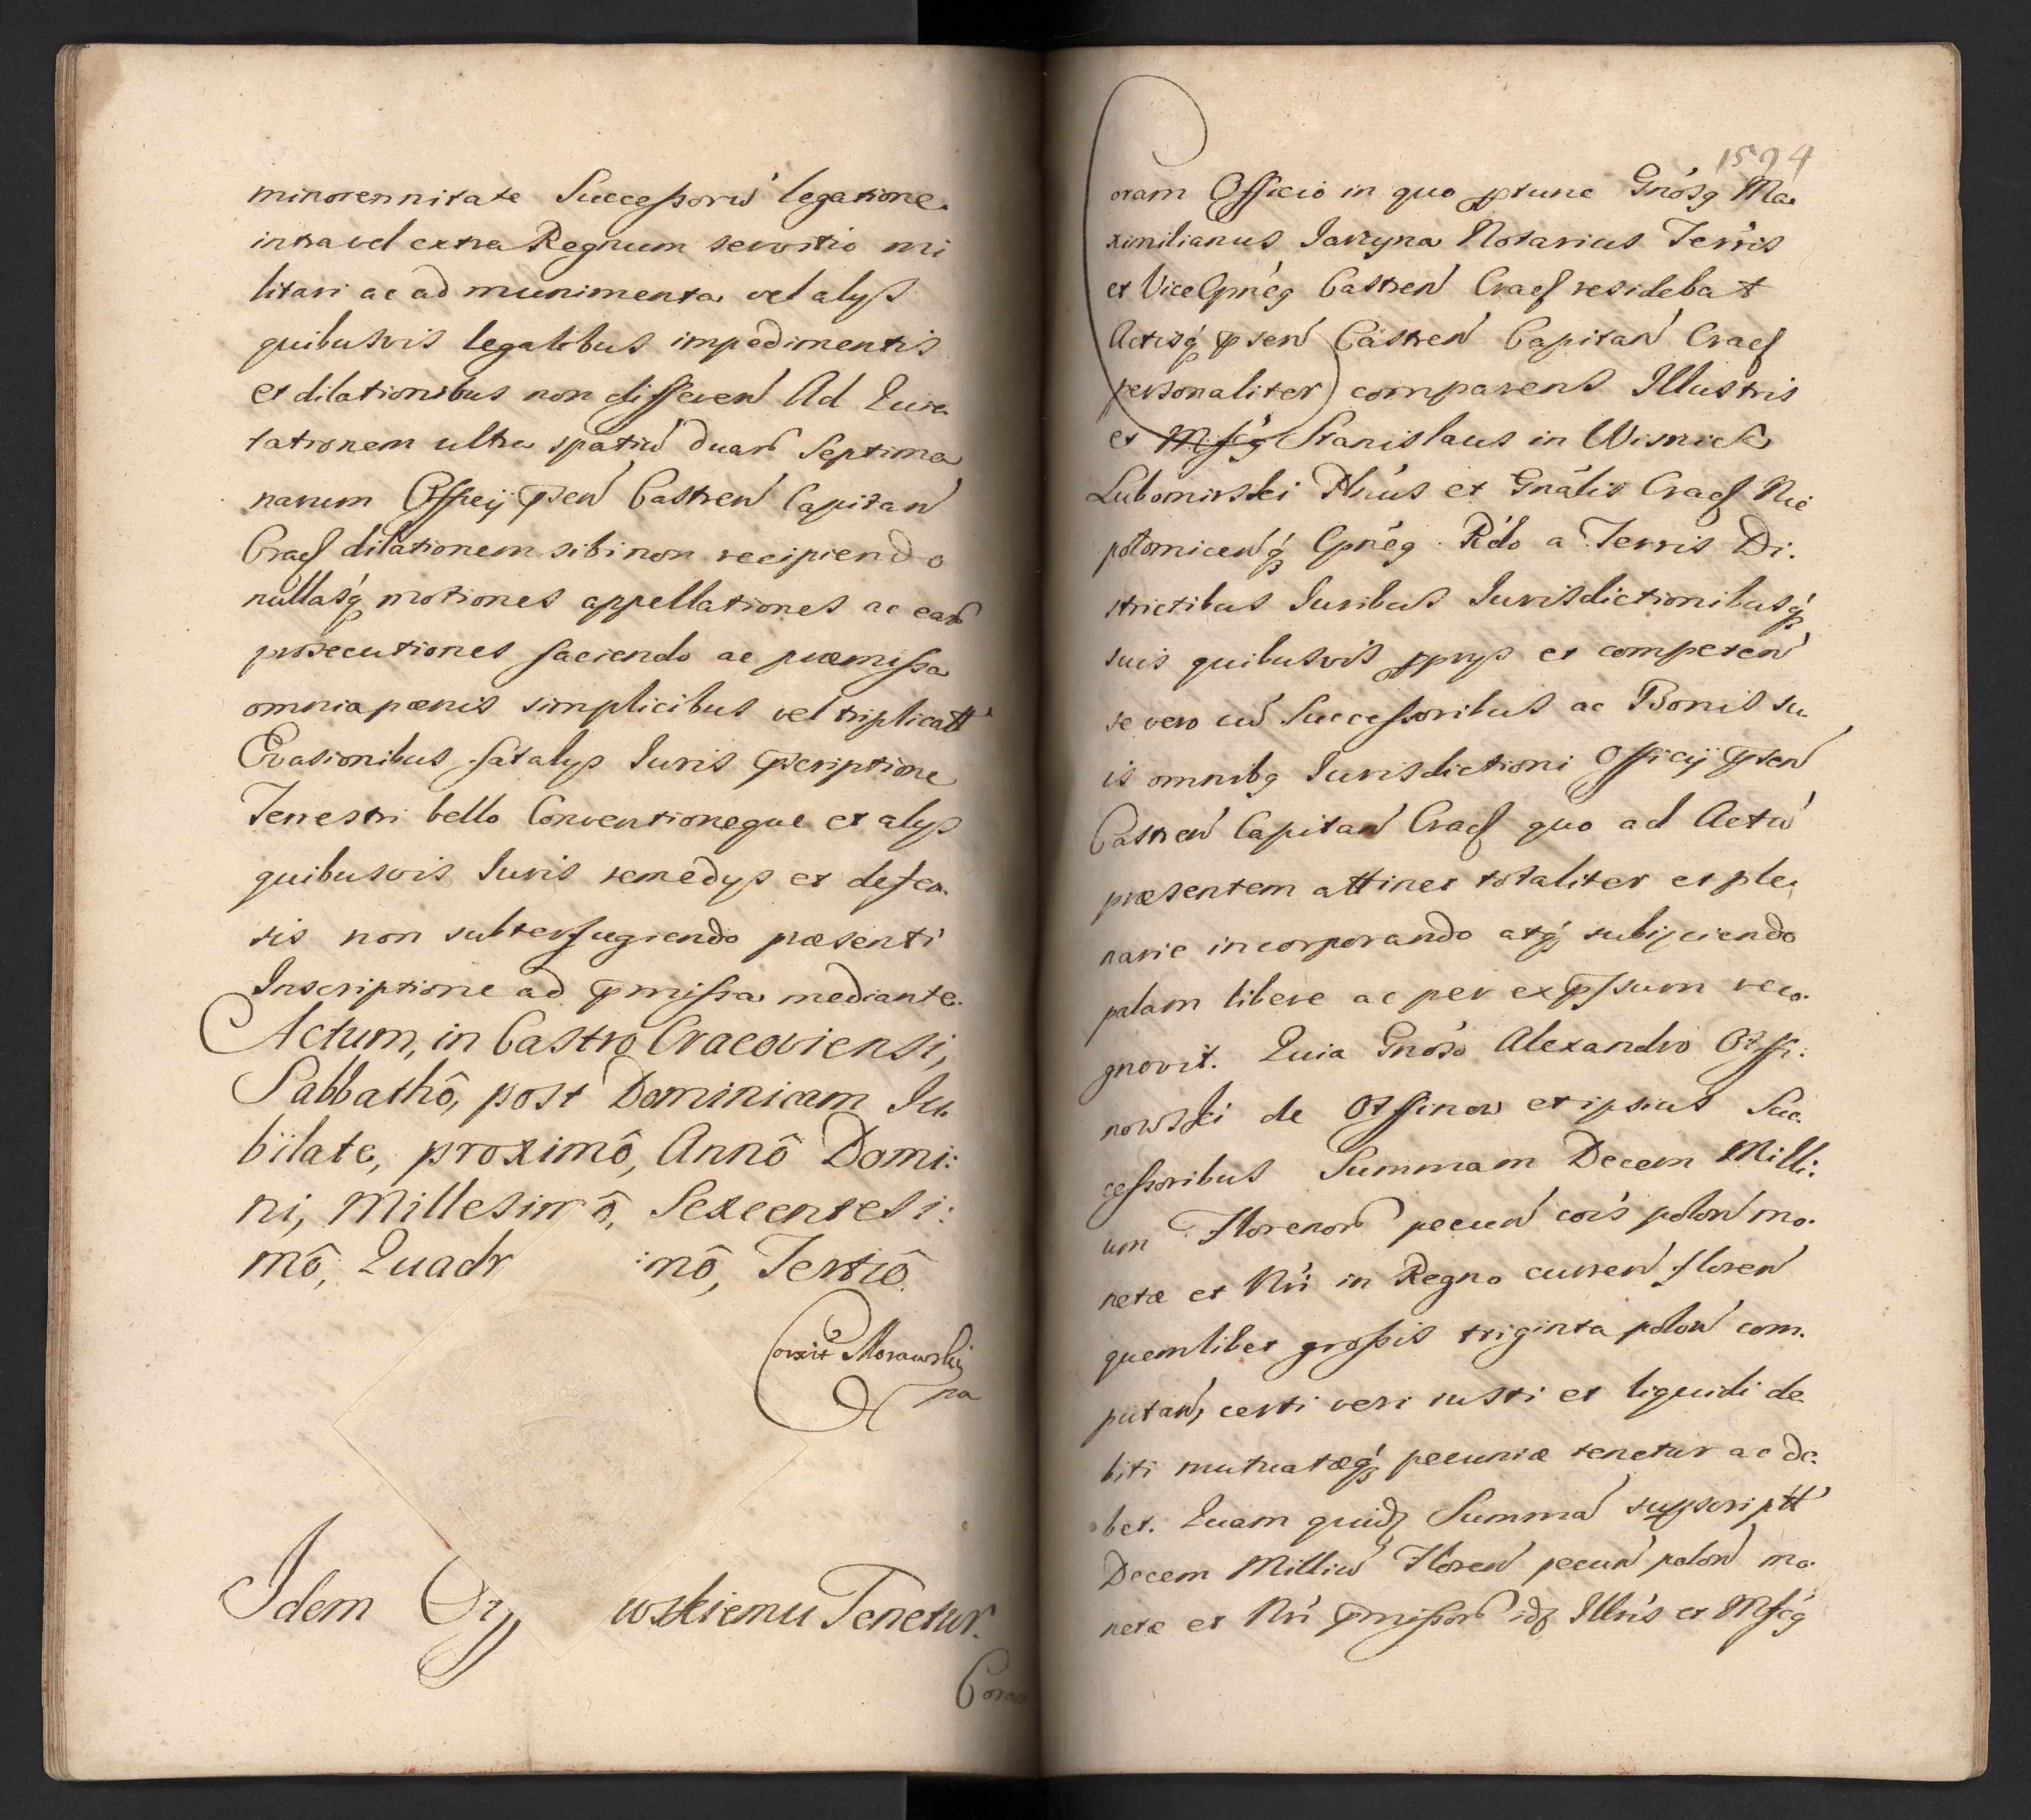 minorennitate Successorū legatione
intra vel extra Regnum servitio mi
litari ac ad munimenta vel alys
quibusvis legalibus impedimentis
et dilationibus non differen̄ Ad Quie
tationem ultra spatiū duar̄ Septima
narum Officij p̄sen̄ Castren̄ Capitan̄
Crac̄ dilationem sibi non recipiendo
nullasq́ motiones appellationes ac ear̄
prosecutiones faciendo ac præmissa
omnia pænis simplicibus vel triplicatt
Evasionibus fatalys Iuris p̄scriptione
Terrestri bello Conventioneque et alys
quibusvis Iuris remedys et defen
sis non subterfugiendo præsenti
Inscriptione ad p̄missa mediante.
Actum, in Castro Cracoviensi,
Sabbathô, post Dominicam Iu
bilate, proximô, Annô Domi:
ni, Millesimô, Sexcentesi:
mô, Quadr :mô, Tertiô.
Corexit Morawski
Idem wskiemu Tenetur.
Coram
1574
oram Officio in quo p̄tunc Gnōsq Ma
ximilianus Jarzyna Notarius Terrīs
et ViceCpnēq Castren̄ Crac̄ residebat
Actisq́ p̄sen̄ Castren̄ Capitan̄ Crac̄
personaliter comparens Illustris
et Mfcq Stanislaus in Wisnicz
Lubomirski Pltnūs et Gnālis Crac̄ Nie
polomicen̄q́ Cpnēq Rdo a Terris Di:
strictibus Iuribus Iurisdictionibusq́
suis quibusvis pprys et competen̄
se vero cū Successoribus ac Bonis su
is omnibq Iurisdictioni Officij p̄sen̄
Castren̄ Capitan̄ Crac̄ quo ad Actū
præsentem attinet totaliter et ple
narie incorporando atq́ subijciendo
palam libere ac per exp̄ssum reco
gnovit. Quia Gnōso Alexandro Ossi:
nowski de Ossinow et ipsius Suc
cessoribus Summam Decem Milli:
um Florenor̄ pecun̄ cōis polon̄ mo
netæ et Nri in Regno curren̄ floren̄
quemlibet grossis triginta polon̄ com
putan̄, certi veri iusti et liquidi de
biti mutuatæq́ pecuniæ tenetur ac de
bet. Quam quidē Summā suprascriptt
Decem Milliū Floren̄ pecun̄ polon̄ mo
netæ et Nri p̄missor̄ idē Illrīs et Mfcq